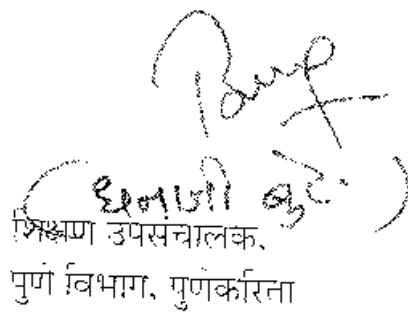 (धनाजी बुटे)
शिक्षण उपसंचालक,
पुणे विभाग, पुणेकरिता